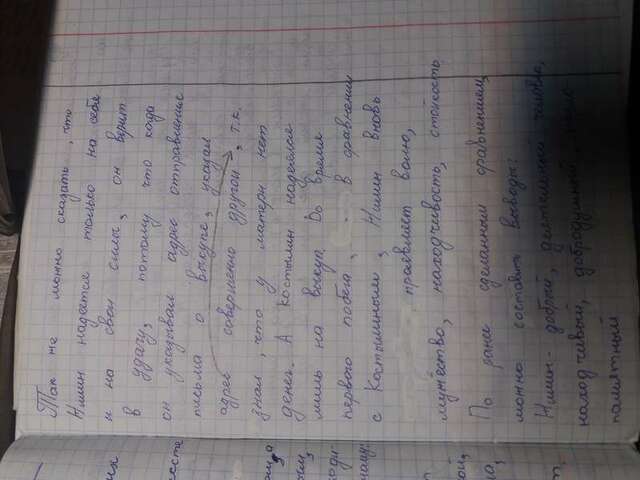 Так же можно сказать, что
Жилин надеется только на себя
и на свои силы, он верит
в удачу, потому что когда
он указывал адрес отправления
письма о выкупе, указал
адрес совершенно другой, т.к.
знал, что у матери нет
денег. А Костылин надеялся
лишь на выкуп. Во время
первого побега, в сравнении
с Костылиным, Жилин вновь
проявляет волю,
мужество, находчивость, стойкость
По ранее сделанным сравнениям,
можно составить выводы:
Жилин - добрый, деятельный человек,
находчивый, добродушный,
памятный